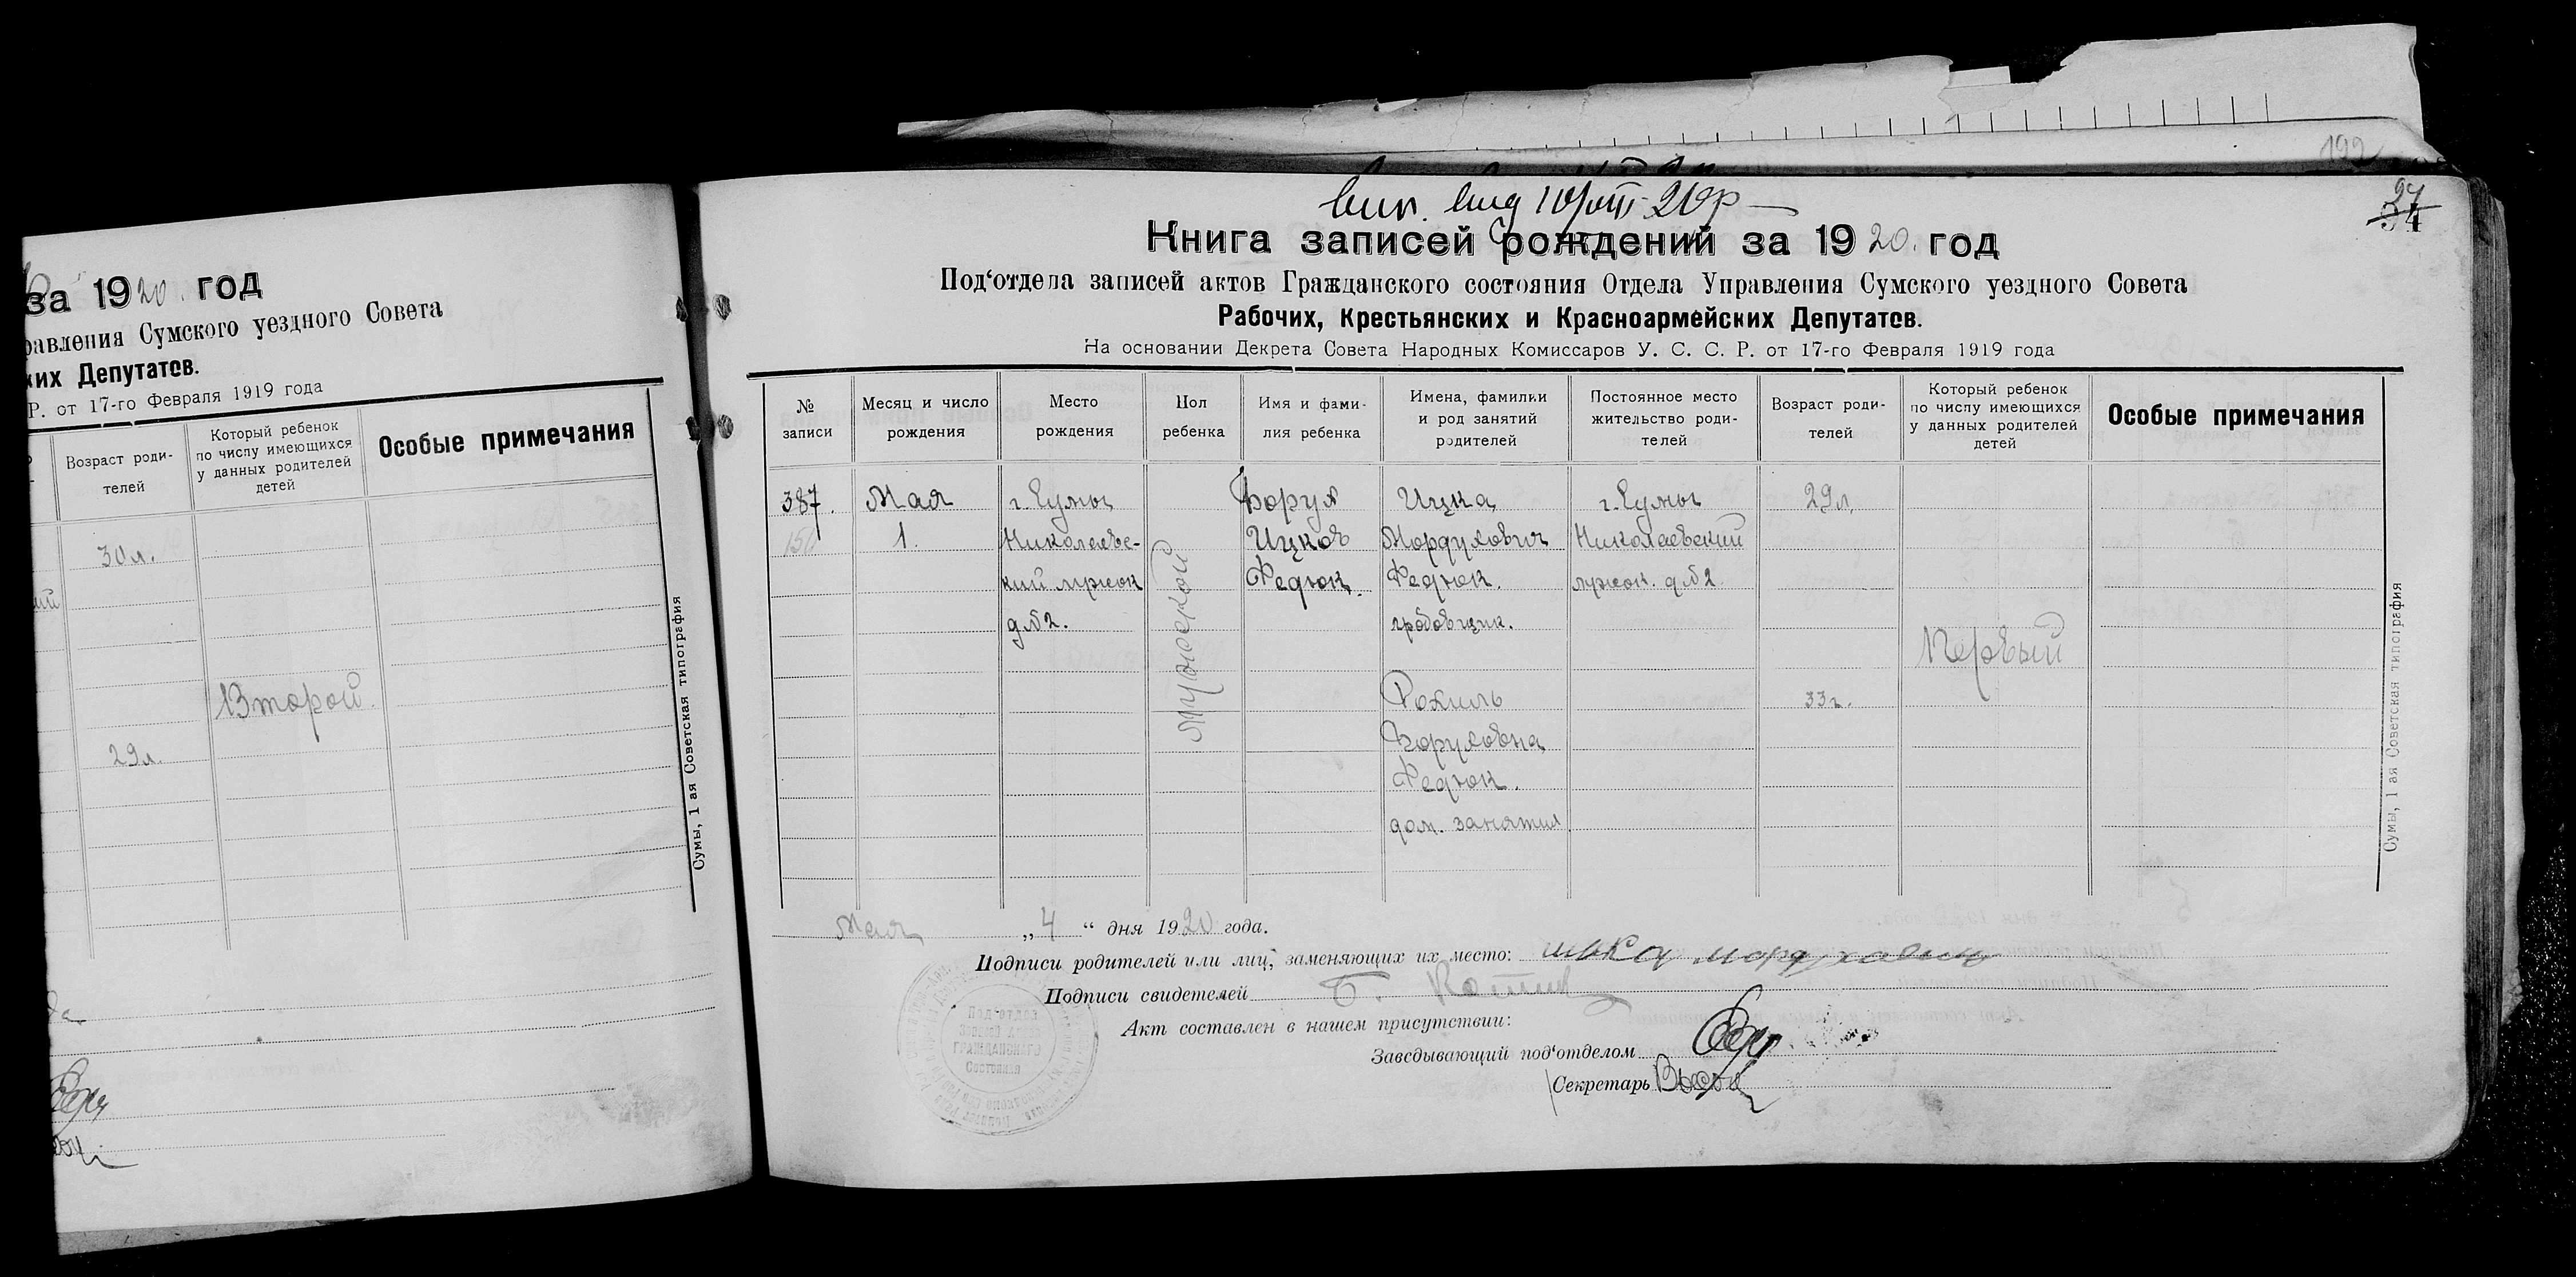 за 1920. год
равления Сумского уездного Совета
ких Депутатов.
Р. от 17-го Февраля 1919 года
Возраст роди-
телей
Который ребенок
по числу имеющихся
у данных родителей
детей
Особые примечания
30 л.
Второй.
29 л.
Сумы, 1 ая Советская типография
192
34
Книга записей рождений за 1920. год
Под‘отдела записей актов Гражданского состояния Отдела Управления Сумского уездного Совета
Рабочих, Крестьянских и Красноармейских Депутатов.
На основании Декрета Совета Народных Комиссаров У. С. С. Р. от 17-го Февраля 1919 года
№
записи
Месяц и число
рождения
Место
рождения
Пол
ребенка
Имя и фами-
лия ребенка
Имена, фамилии
и род занятий
родителей
Постоянное место
жительство роди-
телей
Возраст роди-
телей
Который ребенок
по числу имеющихся
у данных родителей
детей
Особые примечания
387.
150
Мая
1.
г. Сумы
Николаевс-
кий лужок
д. № 2.
Мужской
Борух
Ицков
Федюк.
Ицка
Мордухович
Федюк.
гробовщик.
Рохиль
Боруховна
Федюк.
дом. занятия
г. Сумы
Николаевский
лужок. д. № 2
29 л.
33 г.
Первый
Сумы, 1 ая Советская типография
Мая „4“ дня 1920 года.
Подписи родителей или лиц, заменяющих их место:
Подписи свидетелей Б.
Акт составлен в нашем присутствии:
Заведывающий под‘отделом
Секретарь
Под‘отдел
Записей Актов
Гражданского
Состояния